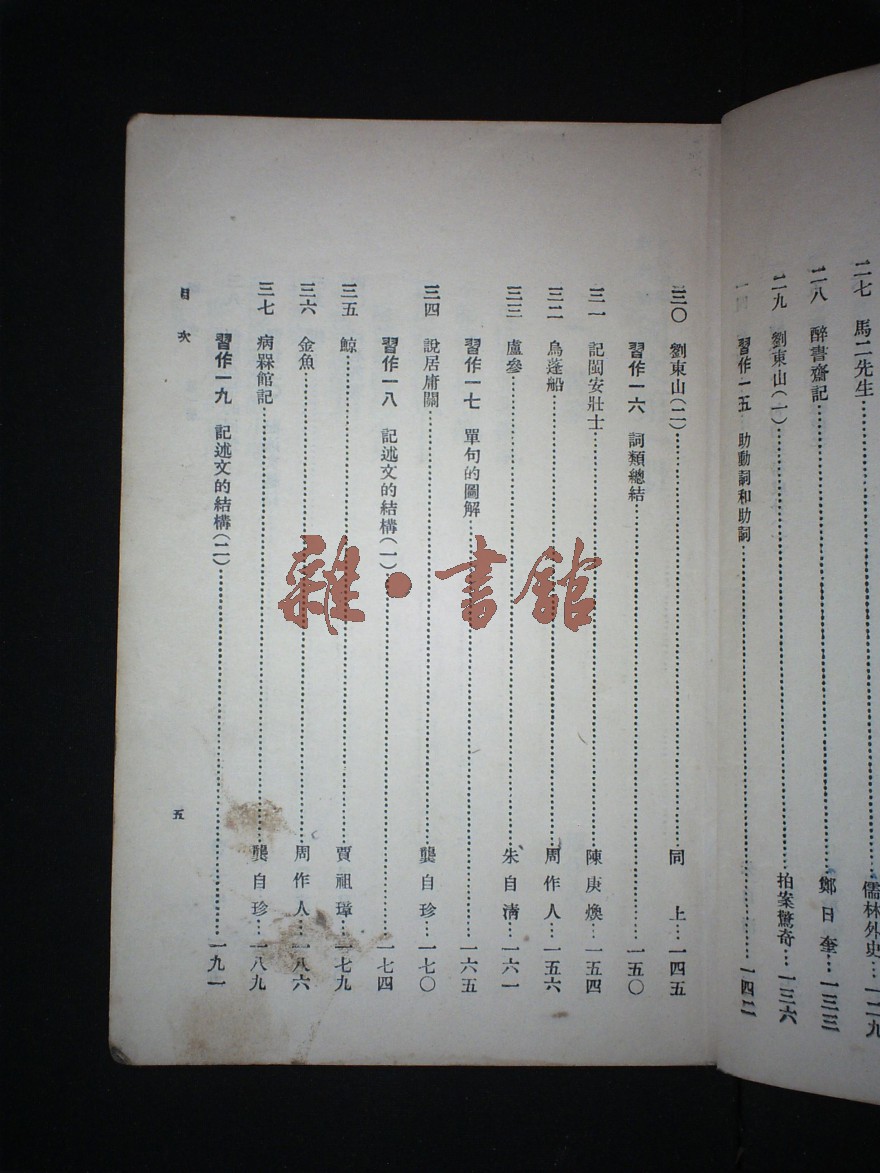 二七 馬二先生 儒林外史…一二九
二八 醉書齋記……鄭日奎…一三三
二九 劉東山(一)……拍案驚奇…一三六
習作一五 助動詞和助詞……一四二
三〇 劉東山(二)……同上…一四五
習作一六 詞類總結……一五〇
三一 記閩安壯士……陳庚煥…一五四
三二 烏蓬船……周作人…一五六
三三 盧參……朱自清…一六一
習作一七 單句的圖解……一六五
三四 說居庸關……龔自珍…一七〇
習作一八 記述文的結構(一)……一七四
三五 鯨……賈祖璋…一七九
三六 金魚……周作人…一八六
三七 病槑館記……龔自珍…一八九
習作一九 記述文的結構(二)……一九一
目次
五
雜·書館